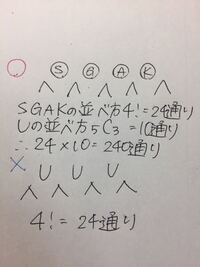 ○ S G A K
∧ ∧ ∧ ∧ ∧
SGAKの並べ方4!=24通り
Uの並べ方5C3=10通り
∴24×10=240通り
× U U U
∧ ∧ ∧ ∧
4!=24通り